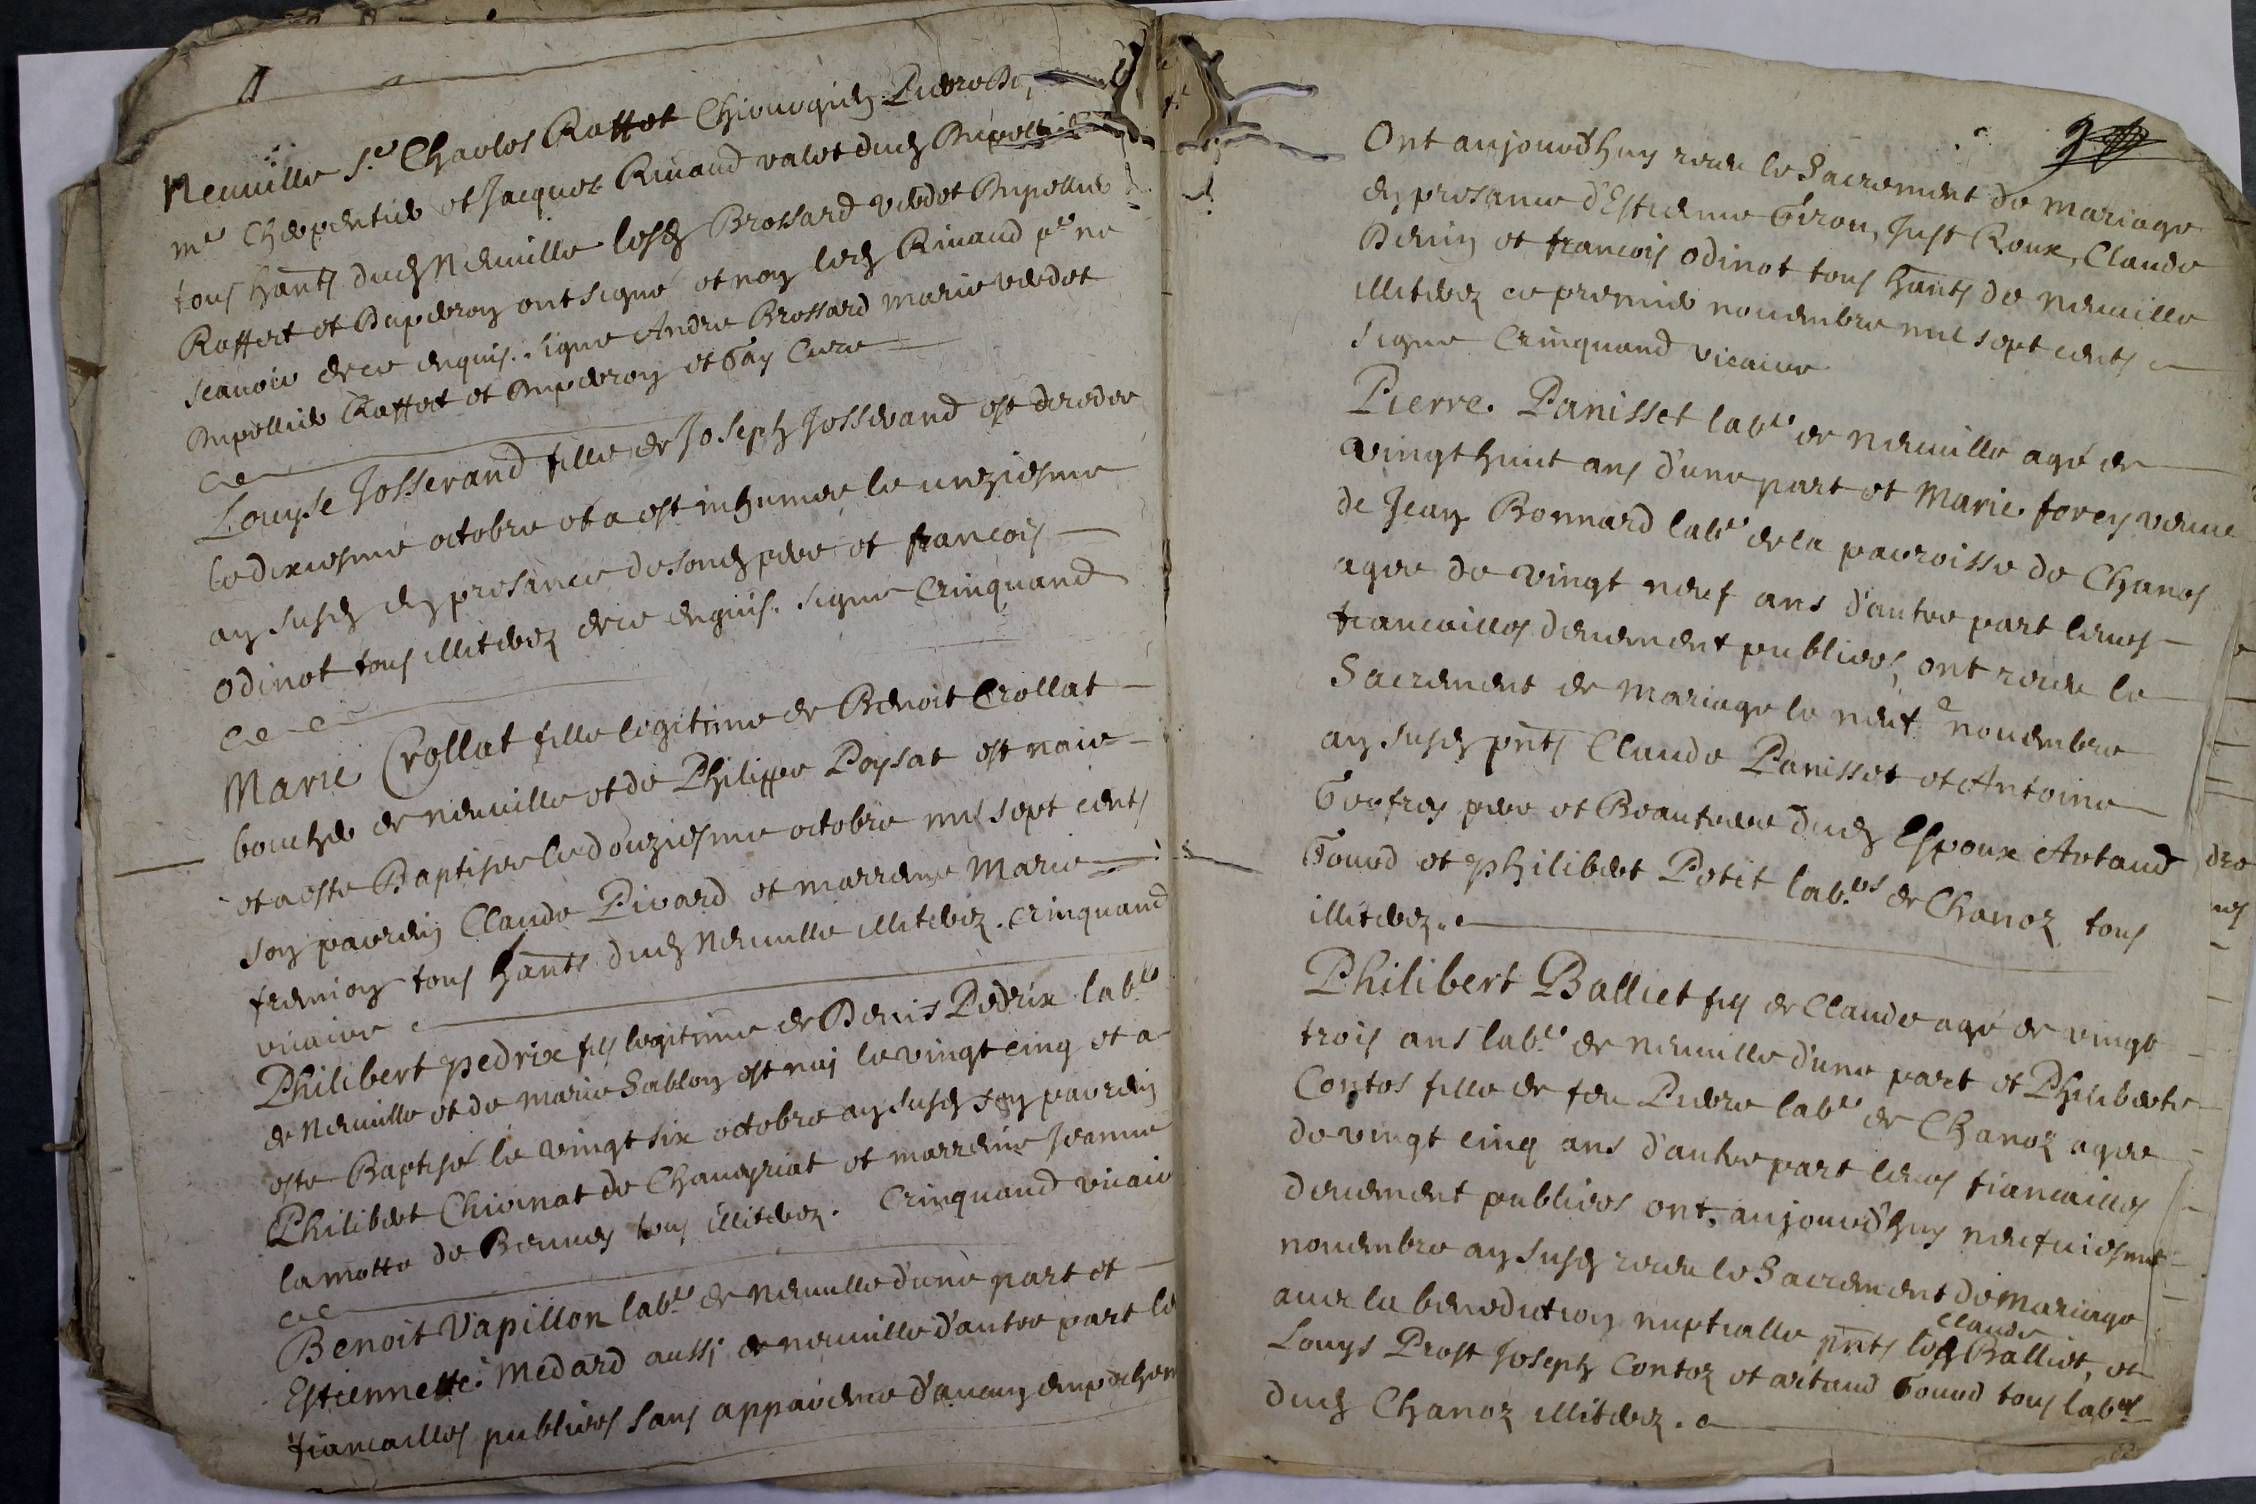 Neuuille S.r Charles Raffet Chirurgien Pierre De,
m.e Charpentier et Jacques Riuaud valet dud. Mipollier
tous hants dud Neuuille lesd Brossard verdet Mipollier
Raffert et Duperon ont signé et non led Riuaud p.r ne
scauoir de ce enquis. signe Andre Brossard marie verdet
Mipollier Raffert et Duperon et Gay Cure
Louyse Josserand fille de Joseph Josserand est decedee
le dixiesme octobre et a est inhumee le unziesme
an susd en presance de sond pere et francois
odinot tous illiterez de ce enquis. signé Crinquand
Marie Crollat fille legitime de Benoit Crollat
boucher de neuuille et de Philippe Poysat est naie
et a este Baptisee le douziesme octobre mil sept cents
son parrein Claude Pivard et marreine Marie
fremion tous hants dud Neuuille illiterez. Crinquand
vicaire
Philibert pedrix fils legitime de Denis Pedrix lab.r
de Neuuille et de marie Sablon est nay le vingt cinq et a
este Baptisé le vingt six octobre an susd son parrein
Philibert Chivinat de Chaueyriat et marreine Jeanne
lamotte de Bernes tous illiterez. Crinquand vicaire
Benoit Vapillon lab.r de neuuille d'une part et
Estiennette Medard aussi de neuuille d'autre part les
fiancailles publiees sans apparence d'aucun empechem
Ont aujourd'huy receu le Sacrement de mariage
en presance d'Estienne Giron, Just Roux, Claude
Deuin et francois odinot tous hants de neuuille
illiterez ce premier nouembre mil sept cents
signe Crinquand vicaire
Pierre Panisset lab.r de neuuille agé de
vingt huit ans d'une part et Marie forey veuue
de Jean Bonnard lab.r de la parroisse de Chanos
agee de vingt neuf ans d'autre part leurs
fiancailles deuement publiees, ont receu le
Sacrement de mariage le neuf.e nouembre
an susd pnts Claude Panisset et Antoine
Geofrey pere et Beaufrere dud Espoux Artaud
Gourd et Philibert Petit lab.rs de Chanoz tous
illiterez.
Philibert Balliet fils de Claude agé de vingt
trois ans lab.r de neuuille d'une part et Philiberte
Contos fille de feu Pierre lab.r de Chanoz agee
de vingt cinq ans d'autre part leurs fiancailles
deuement publiees ont aujourd'huy neufuiesme
nouembre an susd receu le Sacrement de mariage
auec la benediction nuptialle pnts led Claude Balliet, et
Louys Prost Joseph Contoz et artaud Gourd tous lab.rs
dud Chanoz illiterez.